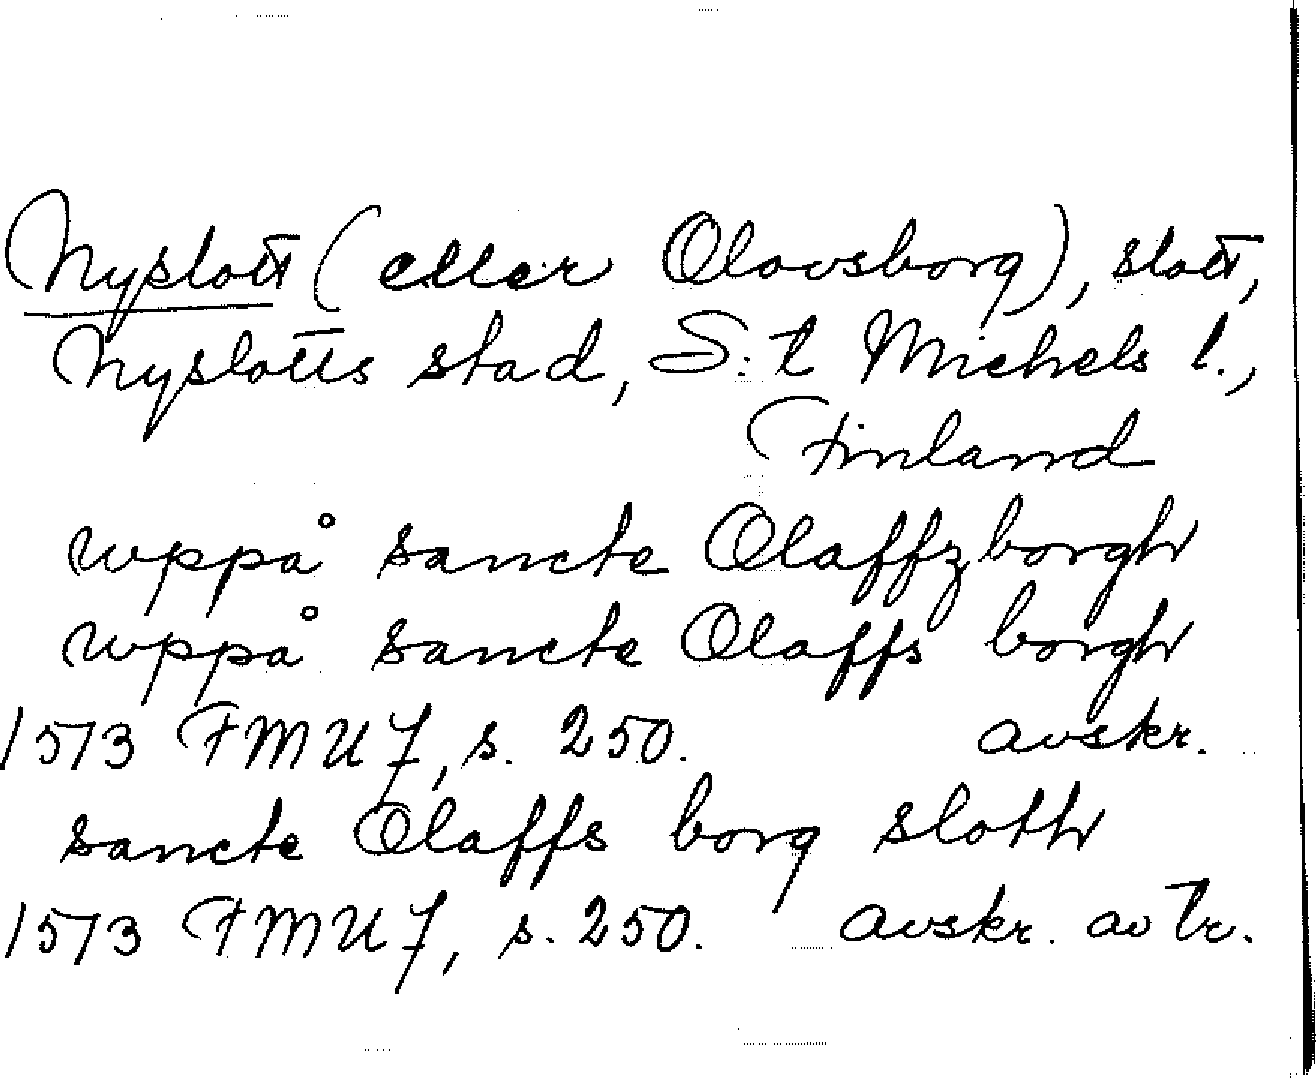 Nyslott (eller Olovsborg), slott,
Nyslotts stad, S:t Michels l.,
Finland
wppå sancte Olaffzborgh
wppå sancte Olaffs borgh
1573 FMU 7, s. 250. avskr.
sancte Olaffs borg slotth
1573 FMU 7, s. 250. avskr. av tr.